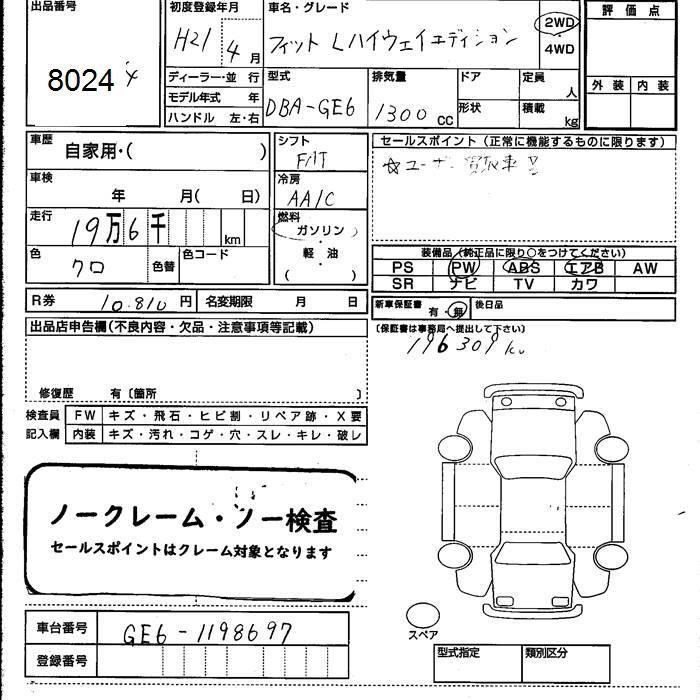 出品番号
8024
初度登録年月
H21 4月
ディーラー・並 行
モデル年式 年
ハンドル 左・右
車名・グレード
フィット Lハイウェイエディション
2WD
・
4WD
型式
DBA-GE6
排気量
1300 cc
ドア
形状
定員 人
積載 kg
評価点
外装 内装
車歴
自家用・( )
車検
年 月( 日)
走行
19万6千 km
色
クロ
色替
色コード
シフト
F/AT
冷房
AA/C
燃料
ガソリン
・
軽・油
( )
セールスポイント(正常に機能するものに限ります)
☆ユーザー買取車
装備品(純正品に限り○をつけてください)
PS PW ABS エアB AW
SR ナビ TV カワ
R券 10.810円 名変期限 月 日
新車保証書 有・無 後日品
(保証書は事務局へ提出して下さい)
196309km
出品店申告欄(不良内容・欠品・注意事項等記載)
修復歴 有〔箇所 〕
検査員 FW キズ・飛石・ヒビ割・リペア跡・X要
記入欄 内装 キズ・汚れ・コゲ・穴・スレ・キレ・破レ
ノークレーム・ノー検査
セールスポイントはクレーム対象となります
車台番号 GE6-1198697
登録番号
スペア
型式指定 類別区分